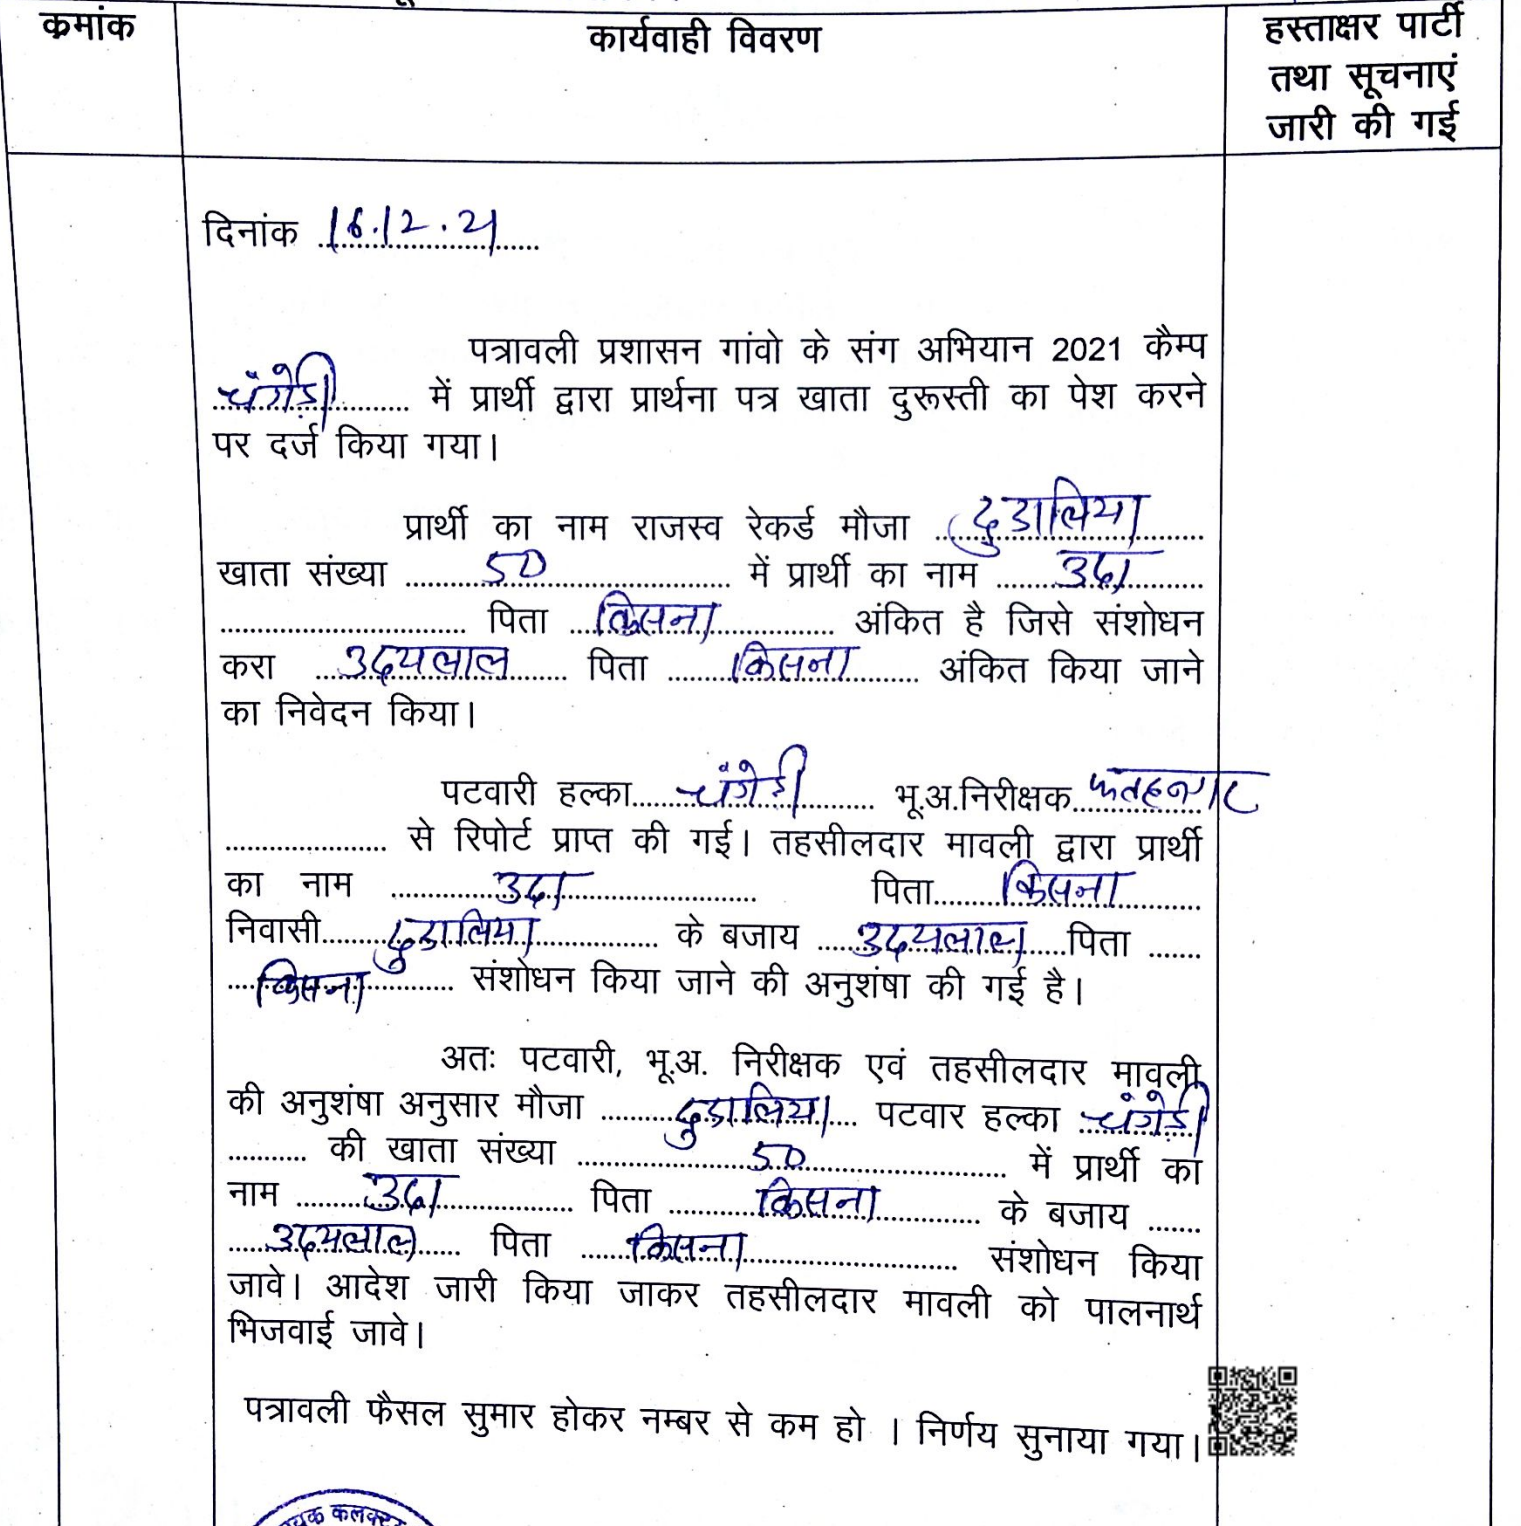 क्रमांक
कार्यवाही विवरण
हस्ताक्षर पार्टी
तथा सूचनाएं
जारी की गई
दिनांक 16.12.21
पत्रावली प्रशासन गांवो के संग अभियान 2021 कैम्प
चंगेड़ी में प्रार्थी द्वारा प्रार्थना पत्र खाता दुरूस्ती का पेश करने
पर दर्ज किया गया।
प्रार्थी का नाम राजस्व रेकर्ड मौजा दुडालिया
खाता संख्या 50 में प्रार्थी का नाम उदा
पिता किसना अंकित है जिसे संशोधन
करा उदयलाल पिता किसना अंकित किया जाने
का निवेदन किया।
पटवारी हल्का चंगेड़ी भू.अ.निरीक्षक फतहनगर
से रिपोर्ट प्राप्त की गई। तहसीलदार मावली द्वारा प्रार्थी
का नाम उदा पिता किसना
निवासी दुडालिया के बजाय उदयलाल पिता
किसना संशोधन किया जाने की अनुशंषा की गई है।
अतः पटवारी, भू.अ. निरीक्षक एवं तहसीलदार मावली
की अनुशंषा अनुसार मौजा दुडालिया पटवार हल्का चंगेड़ी
की खाता संख्या 50 में प्रार्थी का
नाम उदा पिता किसना के बजाय
उदयलाल पिता किसना संशोधन किया
जावे। आदेश जारी किया जाकर तहसीलदार मावली को पालनार्थ
भिजवाई जावे।
पत्रावली फैसल सुमार होकर नम्बर से कम हो । निर्णय सुनाया गया।